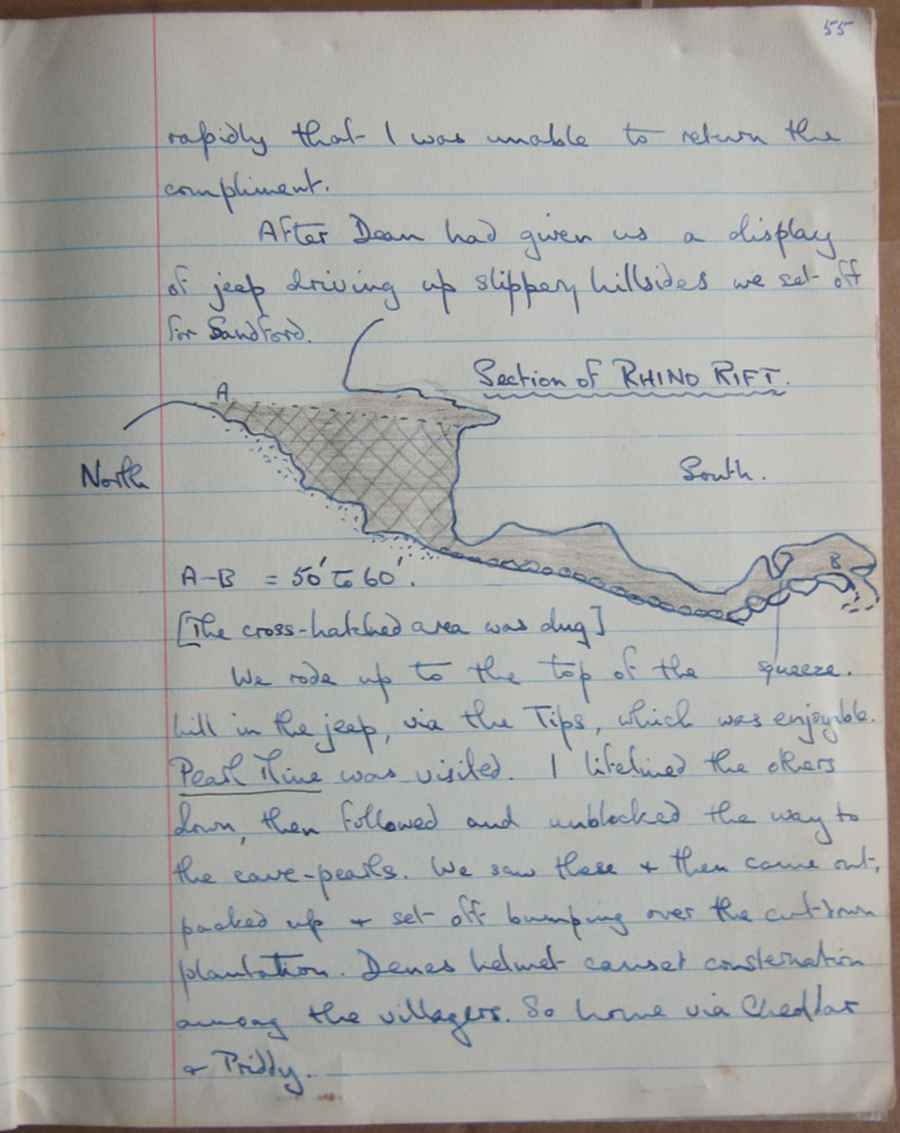 55
rapidly that I was unable to return the
compliment.
After Dean had given us a display
of jeep driving up slippery hillsides we set off
for Sandford.
Section of RHINO RIFT.
A
North
South.
B
A-B = 50' to 60'.
[The cross-hatched area was dug]
squeeze.
We rode up to the top of the
hill in the jeep, via the Tips, which was enjoyable.
Pearl Mine was visited. I lifelined the others
down, then followed and unblocked the way to
the cave-pearls. We saw these + then came out,
packed up + set off bumping over the cut-down
plantation. Denes helmet causet consternation
among the villagers. So home via Cheddar
+ Priddy.